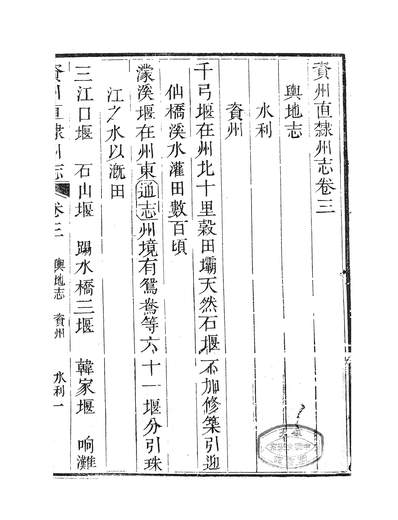 資州直隸州志卷三
輿地志
水利
資州
千弓堰在州北十里穀田壩天然石堰不加修築引迎
仙橋溪水灌田數百頃
濛溪堰在州東通志州境有鴛鴦等六十一堰分引珠
江之水以漑田
三江口堰 石山堰 蹋水橋三堰 韓家堰 响灘
資州直隸州志 卷三 輿地志 資州 水利一